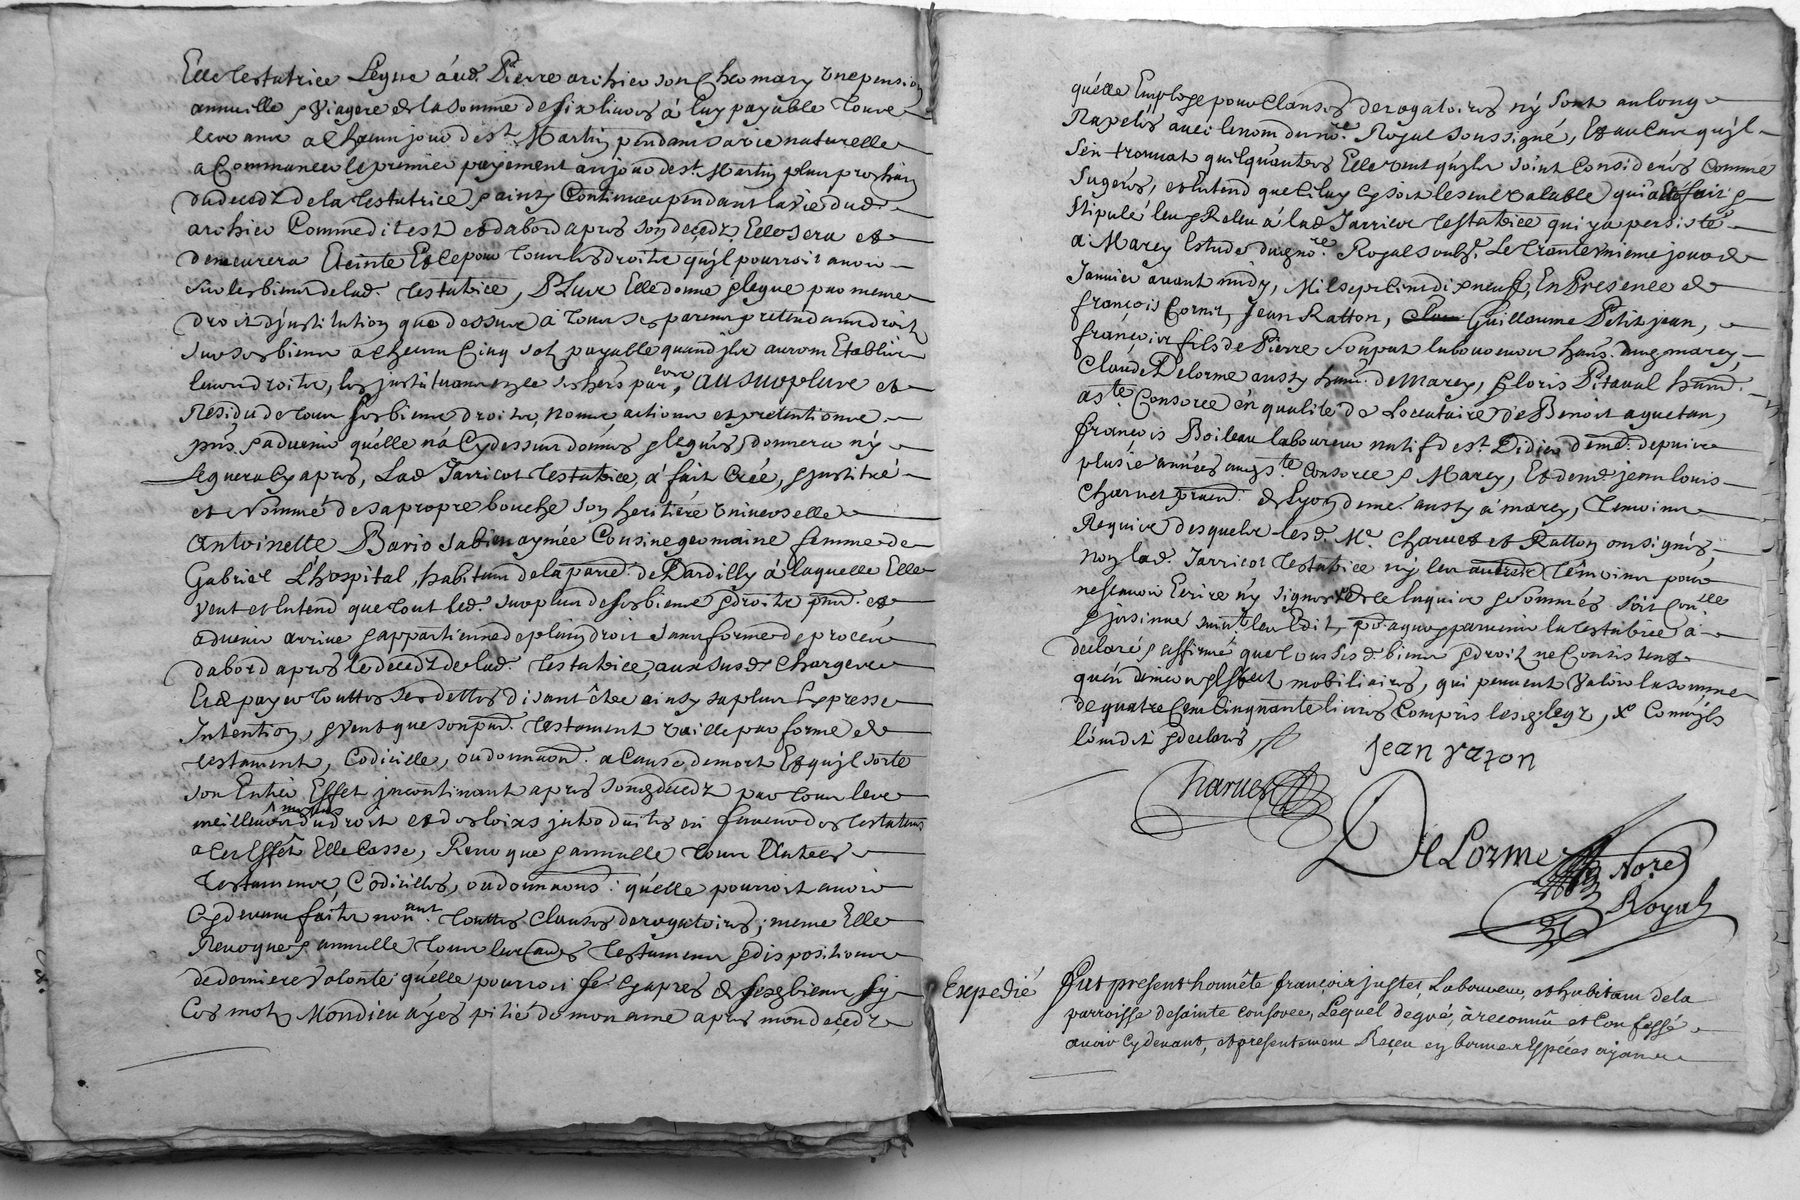 Elle testatrice Legue aud. Pierre archier son cher mary une pension
annuelle & viagere de la somme de six livres à luy payable toutte
leur anne a chacun jour de st. Martin pendant sa vie naturelle
a Commancer le premier payement au jour de st. Martin plus prochain
du decedz de la testatrice & ainsy Continuer pendant la vie dud.
archier Comme dit est et d'abord apres son decedz Elle sera et
demeurera Eteinte Et le pour tous les droits qu'il pourroit avoir
sur les biens de lad. testatrice, Plus Elle donne & legue par meme
droit d'jnstitution que dessus à tous ses parens pretendants droit
sur ses biens a chacun Cinq sols payable quand jls auront Etablis
leurs droits, les jnstituant en ce ses hers par, au surplus et
Residu de tous ses biens droits, noms actions et pretentions
pns. & advenir qu'elle n'a Cy dessus donnés & legués, donnera n'y
leguera Cy apres, Lad Jarricot testatrice, à fait Créé, & jnstitué
et Nommé de sa propre bouche son heritiere universelle
Antoinette Bario sa bien aymée Cousine germaine femme de
Gabriel L'hospital, habitant de la parr. de Dardilly à laquelle Elle
veut et Entend que tout led. surplus de ses biens & droits pnt. et
advenir arrive & appartienne de plain droit sans forme de procéis
d'abord apres le decedz de lad. testatrice, aux susd. Charges
Et de payer touttes ses dettes disant être ainsy sa plus Expresse
Intention, & veut que son pnt. testament vaille par forme de
testament, Codicille, ou donnaon. a Cause de mort Et qu'jl sorte
son Entier Effet jncontinant apres son decedz par tous les
meilleurs moyens du droit et des loix jntroduites en faveur des testateurs
a Cet Effet Elle Casse, Revoque & annulle tous Autres
testamens, Codicilles, ou donnaons. qu'elle pourroit avoir
Cy devant faits nonant. touttes Clauses derogatoires; meme Elle
Revoque & annulle tous les autres testamens & dispositions
de derniere volonté qu'elle pourroit fe Cy apres de ses biens sy
Ces mots Mon dieu ayes pitié de mon ame apres mon decedz
qu'elle Employe pour Clauses derogatoires n'y sont au long
Rapelés avec le nom du no.re Royal soussigné, Et au Cas qu'jl
s'en trouvat quelqu'autres Elle veut qu'jls soint Considerés comme
sugerés, et Entend que Celuy Cy soit le seul valable qui a Eté fait &
stipulé leu & Releu à lad Jarricot testatrice qui y a persisté
a Marcy Estude du no.re Royal soubs. Le trante unieme jour de
Janvier avant midy, Mil sept cent dix neuf, En Presence de
françois Cornir, Jean Ratton, Guillaume Petit jean,
françois fils de Pierre Loupat laboureur hans. dud marcy
Claude Delorme aussy han. de Marcy, floris Pitaval han.
a ste. Consorce en qualité de Loccataire de Benoit aguetan,
françois Boileau laboureur natif de st. Didier deme. depuis
plusie années aud ste. Consorce & Marcy, Et de me. jean louis
Charvet de Lyon deme. aussy à marcy, temoins
Requis desquels lesd. Me. Charvet et Ratton ont signés
non lad. Jarricot testatrice n'y les autres témoins pour
ne scavoir Ecrire n'y signer de ce Enquis & sommés soit Con.llé
& jnsinué suivt. les Edit, pnt. auquel parvenir la testatrice a
declaré & affirmé que tous sesd. biens & droit ne Consistent
qu'en deniers & effect mobiliaires, qui peuvent valoir la somme
de quatre Cent Cinquante livres Compris lesd. legz, Comme jls
l'ont dit & declarés
jean razon
Charvet
DeLorme Nore
Royal
Expedié
Fut present honnête françois juste, Laboureur, et habitant de la
parroisse de sainte Consorce, Lequel de gré, à reconnû et Confessé
avoir Cy devant, et presentement Reçeu en bonnes Espéces ayans